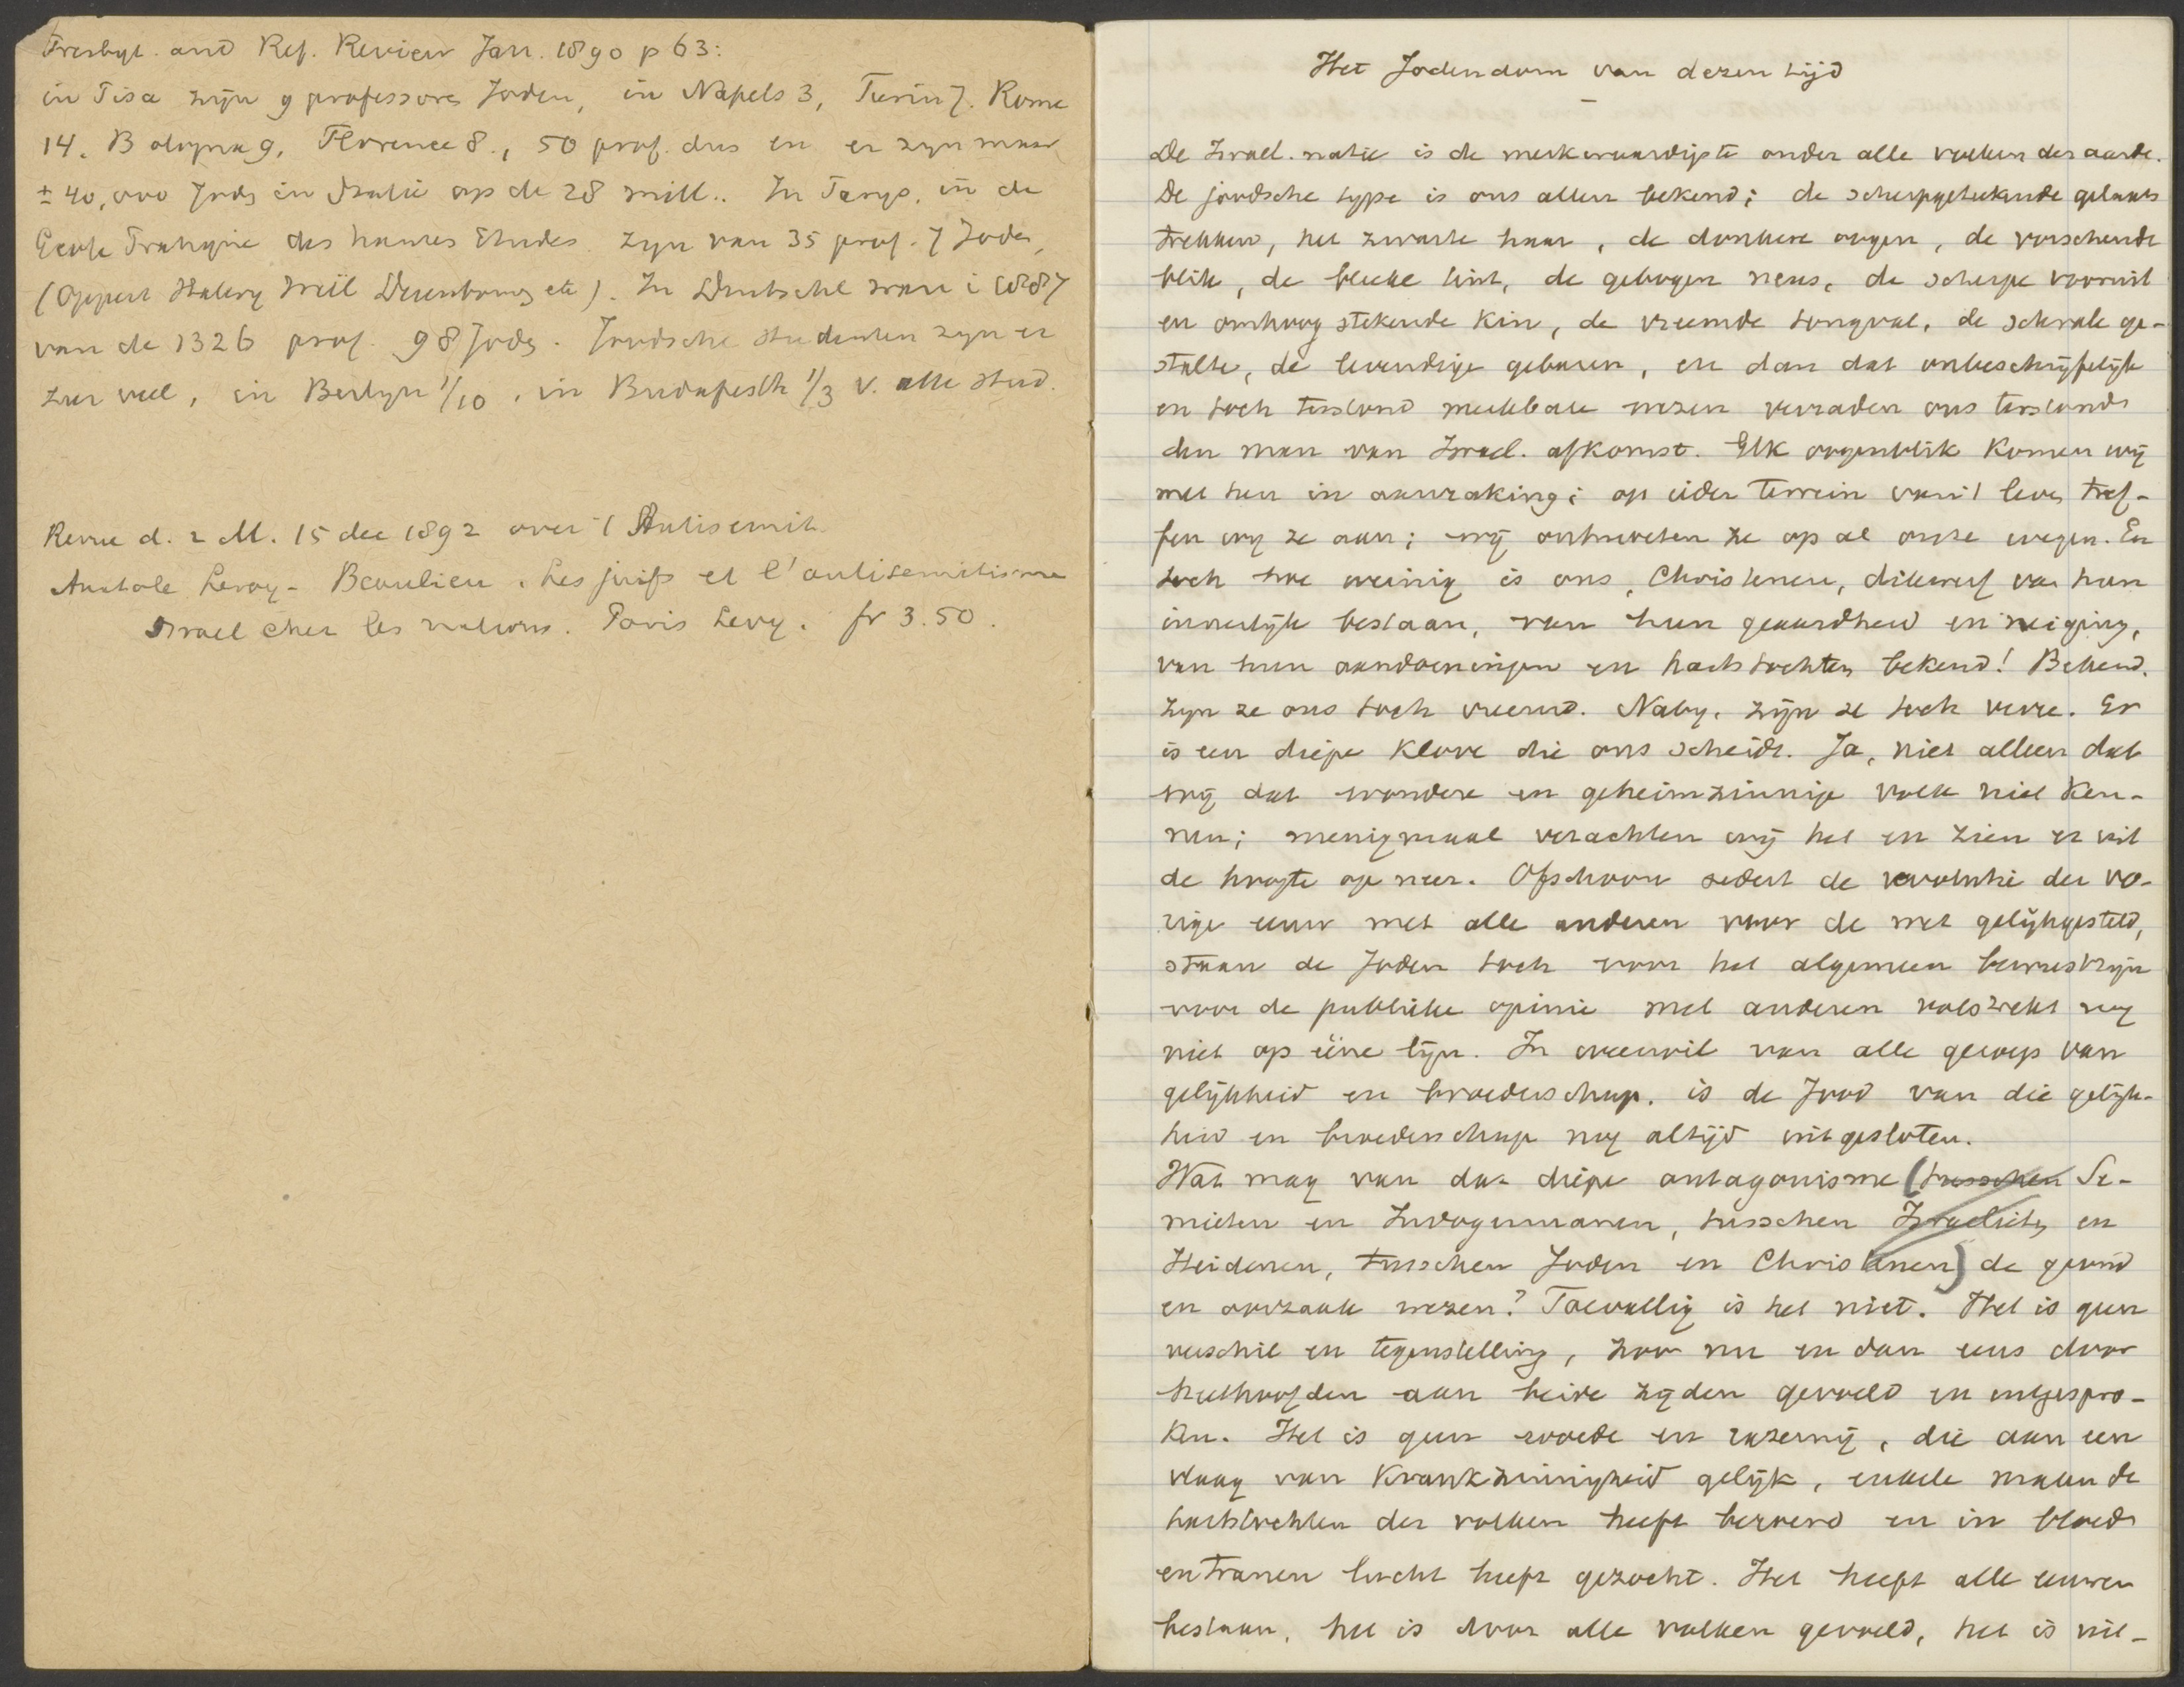 Presbyt. and Ref. Review Jan. 1890 p 63:
in Pisa zijn 9 professoren Joden, in Napels 3, Turin 7. Rome
14. Bologna 9, Florence 8., 50 prof. dus en er zijn maar
± 40,000 Jods in Italie op de 28 mill.. In Parys, in de
Ecole Pratique des hautes Etudes zyn van 35 prof. 7 Joden,
(Oppert Halevy Weil Derenbourg etc). In Duitschl waren i 1887
van de 1326 prof. 98 Jods. Joodsche studenten zyn er
zeer veel, in Berlyn 1/10, in Budapesth 1/3 v. alle stud.
Revue d. 2 M. 15 dec 1892 over 't Antisemit.
Anatole Leroy-Beaulieu, Les juifs et l'antisemitisme
Israel chez les nations. Paris Levy. fr 3.50.
Het Jodendom van dezen tijd
De Israel. natie is de merkwaardigste onder alle volken der aarde.
De joodsche type is ons allen bekend; de scherpgeteekende gelaats
trekken, het zwarte haar, de donkere oogen, de vorschende
blik, de bleeke tint, de gebogen neus, de scherpe vooruit
en omhoog stekende kin, de vreemde tongval, de schrale ge-
stalte, de levendige gebaren, en dan dat onbeschrijfelijk
en toch terstond merkbare wezen verraden ons terstond
den man van Israel. afkomst. Elk oogenblik komen wij
met hen in aanraking; op ieder terrein van 't leven tref-
fen wij ze aan; wij ontmoeten ze op al onze wegen. En
toch hoe weinig is ons, Christenen, dikwerf van hun
innerlijk bestaan, van hun geaardheid en neiging,
van hun aandoeningen en hartstochten bekend! Bekend.
zyn ze ons toch vreemd. Naby, zijn ze toch verre. Er
is een diepe klove die ons scheidt. Ja, niet alleen dat
wij dat wondere en geheimzinnige volk niet ken-
nen; menigmaal verachten wij het en zien er uit
de hoogte op neer. Ofschoon sedert de revolutie der vo-
rige eeuw met alle anderen voor de wet gelijkgesteld,
staan de Joden toch voor het algemeen bewustzijn
voor de publieke opinie met anderen volstrekt nog
niet op ééne lijn. In weerwil van alle geroep van
gelijkheid en broederschap, is de Jood van die gelijk-
heid en broederschap nog altijd uitgesloten.
Wat mag van dat diepe antagonisme (tusschen Se-
mieten en Indogermanen, tusschen Israelieten en
Heidenen, tusschen Joden en Christenen) de grond
en oorzaak wezen? Toevallig is het niet. Het is geen
verschil en tegenstelling, zoo nu en dan eens door
heethoofden aan beide zijden gevoeld en uitgespro-
ken. Het is geen woede en razernij, die aan een
vlaag van krankzinnigheid gelijk, enkele malen de
hartstochten der volken heeft beroerd en in bloed
en tranen lucht heeft gezocht. Het heeft alle eeuwen
bestaan, het is door alle volken gevoeld, het is uit-